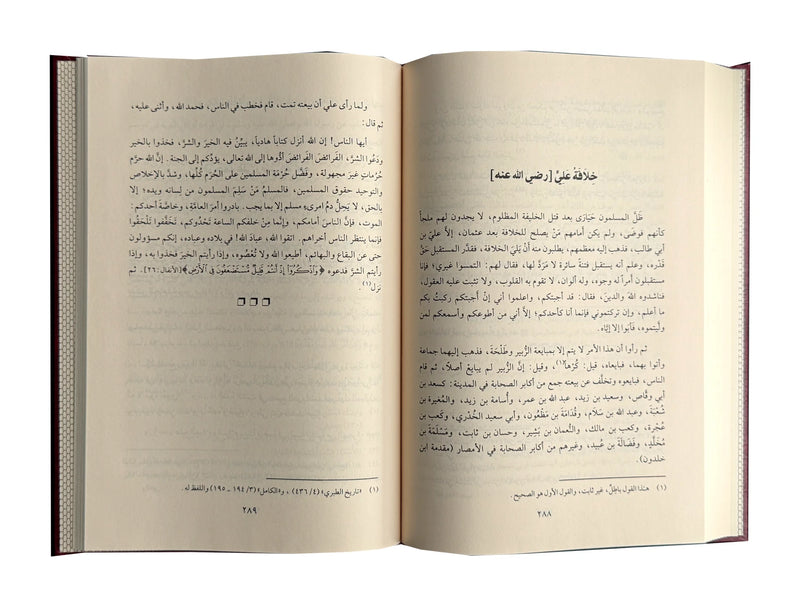 خِلافَةُ عَليٍّ [رضي الله عنه]
ظَلَّ المسلمون حَيَارَى بعد قتل الخليفة المظلوم، لا يجدون لهم ملجأ
كأنهم فوضَى، ولم يكن أمامهم مَنْ يصلح للخلافة بعد عثمان، إلاَّ عليّ بن
أبي طالب، فذهب إليه معظمهم، يطلبون منه أنْ يَلِيَ الخلافة، فقدَّر المستقبل حَقَّ
قَدْره، وعلم أنه يستقبل فتنةً سائرة لا مَرَدَّ لها، فقال لهم: التمسوا غيري؛ فإنا
مستقبلون أمراً له وجوه، وله ألوان، لا تقوم به القلوب، ولا تثبت عليه العقول،
فناشدوه اللهَ والدينَ، فقال: قد أجبتكم، واعلموا أني إنْ أجبتكم ركبتُ بكم
ما أعلم، وإن تركتموني فإنما أنا كأحدكم؛ إلاَّ أني من أطوعكم وأسمعكم لمن
ولَّيتموه، فأبَوا إلا إيَّاه.
ثم رأوا أن هذا الأمر لا يتم إلا بمبايعة الزُّبير وطَلْحَةَ، فذهب إليهما جماعة
وأتوا بهما، فبايعاه، قيل: كُرْهاً(١)، وقيل: إنَّ الزُّبير لم يبايعْ أصلاً، ثم قام
الناس، فبايعوه وتخلَّف عن بيعته جمع من أكابر الصحابة في المدينة: كسعد بن
أبي وقَّاص، وسعيد بن زيد، عبد الله بن عمر، وأسامة بن زيد، والمُغيرة بن
شُعْبَة، وعبد الله بن سَلَام، وقُدَامَةَ بن مَظْعُون، وأبي سعيد الخُدْري، وكَعب بن
عُجْرة، وكعب بن مالك، والنُّعمان بن بَشِير، وحسان بن ثابت، ومَسْلَمَةَ بن
مُخَلَّدٍ، وفَضَالَةَ بن عُبيد، وغيرهم من أكابر الصحابة في الأمصار (مقدمة ابن
خلدون).
(١) هـٰذا القول باطلٌ، غير ثابت، والقول الأول هو الصحيح.
٢٨٨
ولما رأى عليّ أن بيعته تمت، قام فخطب في الناس، فحمد الله، وأثنى عليه،
ثم قال:
أيها الناس! إن الله أنزل كتاباً هادياً، يبيِّنُ فيه الخيرَ والشرَّ، فخذوا بالخير
ودَعُوا الشرَّ، الفرائضَ الفرائضَ أدُّوها إلى الله تعالى، يؤدِّكم إلى الجنة. إنَّ الله حرَّم
حُرُماتٍ غيرَ مجهولة، وفضَّل حُرْمَة المسلمين على الحُرَم كُلِّها، وشدَّ بالإخلاص
والتوحيد حقوق المسلمين، فالمسلمُ مَنْ سَلِمَ المسلمون من لسانه ويده؛ إلا
بالحق، لا يحِلُّ دمُ امرىءٍ مسلم إلا بما يجب. بادروا أمرَ العامَّةِ، وخاصَّةَ أحدكم:
الموت، فإنَّ الناسَ أمامَكم، وإنَّما مِن خلفكم الساعة تَحْدُوكم، تخفَّفوا تَلْحَقُوا
فإنما ينتظر الناس أخراهم. اتقوا الله، عبادَ الله! في بلاده وعباده، إنكم مسؤولون
حتى عن البقاع والبهائم، أطيعوا اللهَ ولا تُعْصُوه، وإذا رأيتم الخيرَ فخذوا به، وإذا
رأيتم الشرَّ فدعوه ﴿وَٱذْكُرُوٓا۟ إِذْ أَنتُمْ قَلِيلٌ مُّسْتَضْعَفُونَ فِى ٱلْأَرْضِ﴾ [الأنفال: ٢٦]. ثم
نزل(١)
❒ ❒ ❒
(١) «تاريخ الطبري» (٤/ ٤٣٦)، و«الكامل» (٣/ ١٩٤ ـ ١٩٥) واللفظ له.
٢٨٩